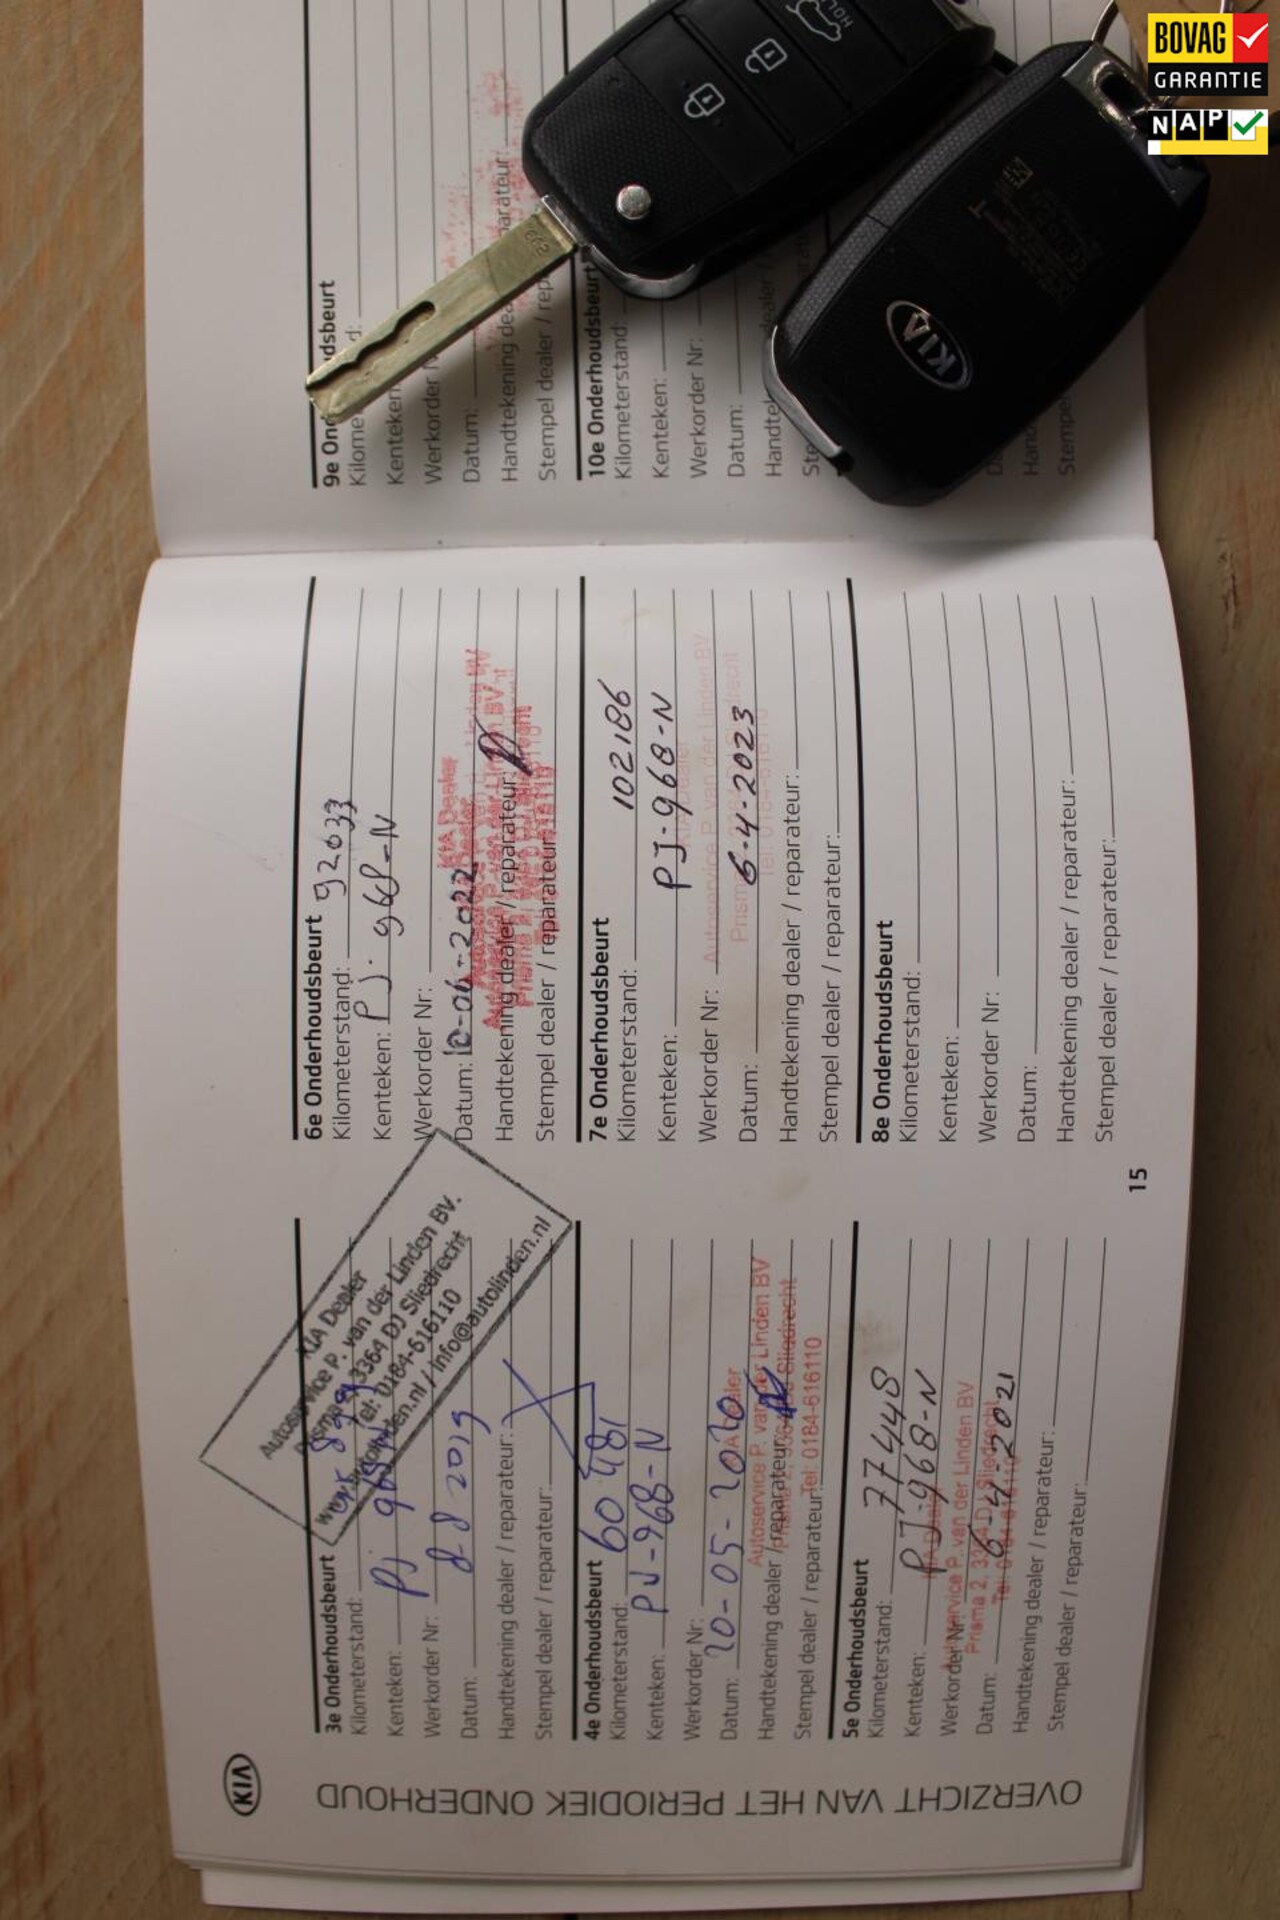 BOVAG
GARANTIE
NAP
HOLD
KIA
KIA
OVERZICHT VAN HET PERIODIEK ONDERHOUD
3e Onderhoudsbeurt
Kilometerstand:
Kenteken: PJ 968
Werkorder Nr:
Datum: 8-8 2019
Handtekening dealer / reparateur:
Stempel dealer / reparateur:
KIA Dealer
Autoservice P. van der Linden BV.
Prisma 2, 3364 DJ Sliedrecht
Tel: 0184-616110
www.autolinden.nl / info@autolinden.nl
4e Onderhoudsbeurt
Kilometerstand: 60 481
Kenteken: PJ-968-N
Werkorder Nr:
Datum: 20-05-2020
Handtekening dealer / reparateur:
Stempel dealer / reparateur:
KIA Dealer
Autoservice P. van der Linden BV
Prisma 2, 3364 DJ Sliedrecht
Tel: 0184-616110
5e Onderhoudsbeurt
Kilometerstand: 77448
Kenteken: PJ-968-N
Werkorder Nr:
Datum: 6-4-2021
Handtekening dealer / reparateur:
Stempel dealer / reparateur:
KIA Dealer
Autoservice P. van der Linden BV
Prisma 2, 3364 DJ Sliedrecht
Tel: 0184-616110
6e Onderhoudsbeurt
Kilometerstand: 92033
Kenteken: PJ-968-N
Werkorder Nr:
Datum: 10-06-2022
Handtekening dealer / reparateur:
Stempel dealer / reparateur:
KIA Dealer
7e Onderhoudsbeurt
Kilometerstand: 102186
Kenteken: PJ-968-N
Werkorder Nr:
Datum: 6-4-2023
Handtekening dealer / reparateur:
Stempel dealer / reparateur:
KIA Dealer
Autoservice P. van der Linden BV
Prisma 2, 3364 DJ Sliedrecht
Tel: 0184-616110
8e Onderhoudsbeurt
Kilometerstand:
Kenteken:
Werkorder Nr:
Datum:
Handtekening dealer / reparateur:
Stempel dealer / reparateur:
15
9e Onderhoudsbeurt
Kenteken
Werkorder N
Datum:
Handtekening dea
Stempel dealer / rep
10e Onderhoudsbeurt
Kilometerstand:
Kenteken:
Werkorder Nr:
Datum: